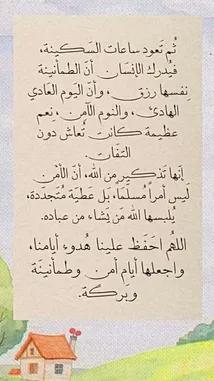 ثُم تَعود ساعات السَكينة،
فيُدرك الإنسَان أنّ الطمأنينة
نِفسها رزق ، وأنّ اليَوم العَادي
الهادئ، والنوم الآمن، نِعم
عظيمة كانت تُعاش دون
التفَات.
إنها تَذكير مِن الله، أنّ الأمْن
ليس أمراً مُسلمًا، بَل عَطية مُتَجددة،
يُلبسها الله مَن يَشاء من عباده.
اللهُم احَفَظ علينا هُدوء أيامنا،
واجعلها أيام أمن وطمأنينَة
وبَركَة.